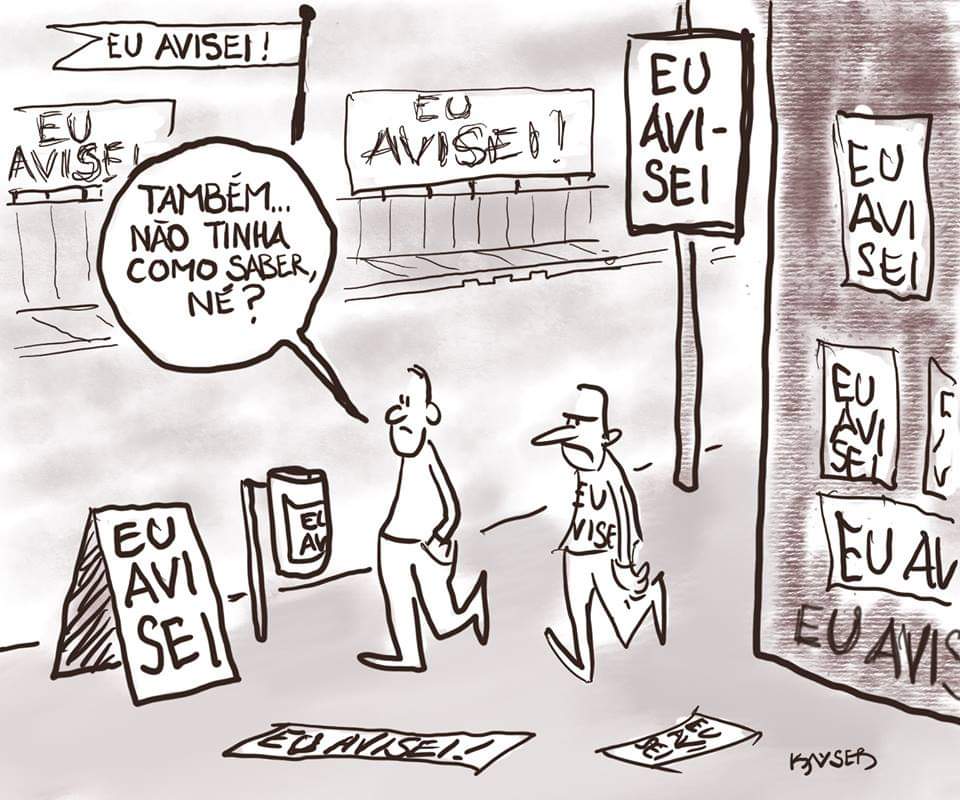 EU AVISEI!
EU
AVISEI
EU
AVISEI!
EU
AVI-
SEI
EU
AVI
SEI
TAMBÉM...
NÃO TINHA
COMO SABER,
NÉ?
EU
AVI
SEI
EU
AVI
SEI
EU
VISE
EU
AV
EU AV
EU AVIS
EU AVISEI!
EU
AVI
SEI
KAYSER